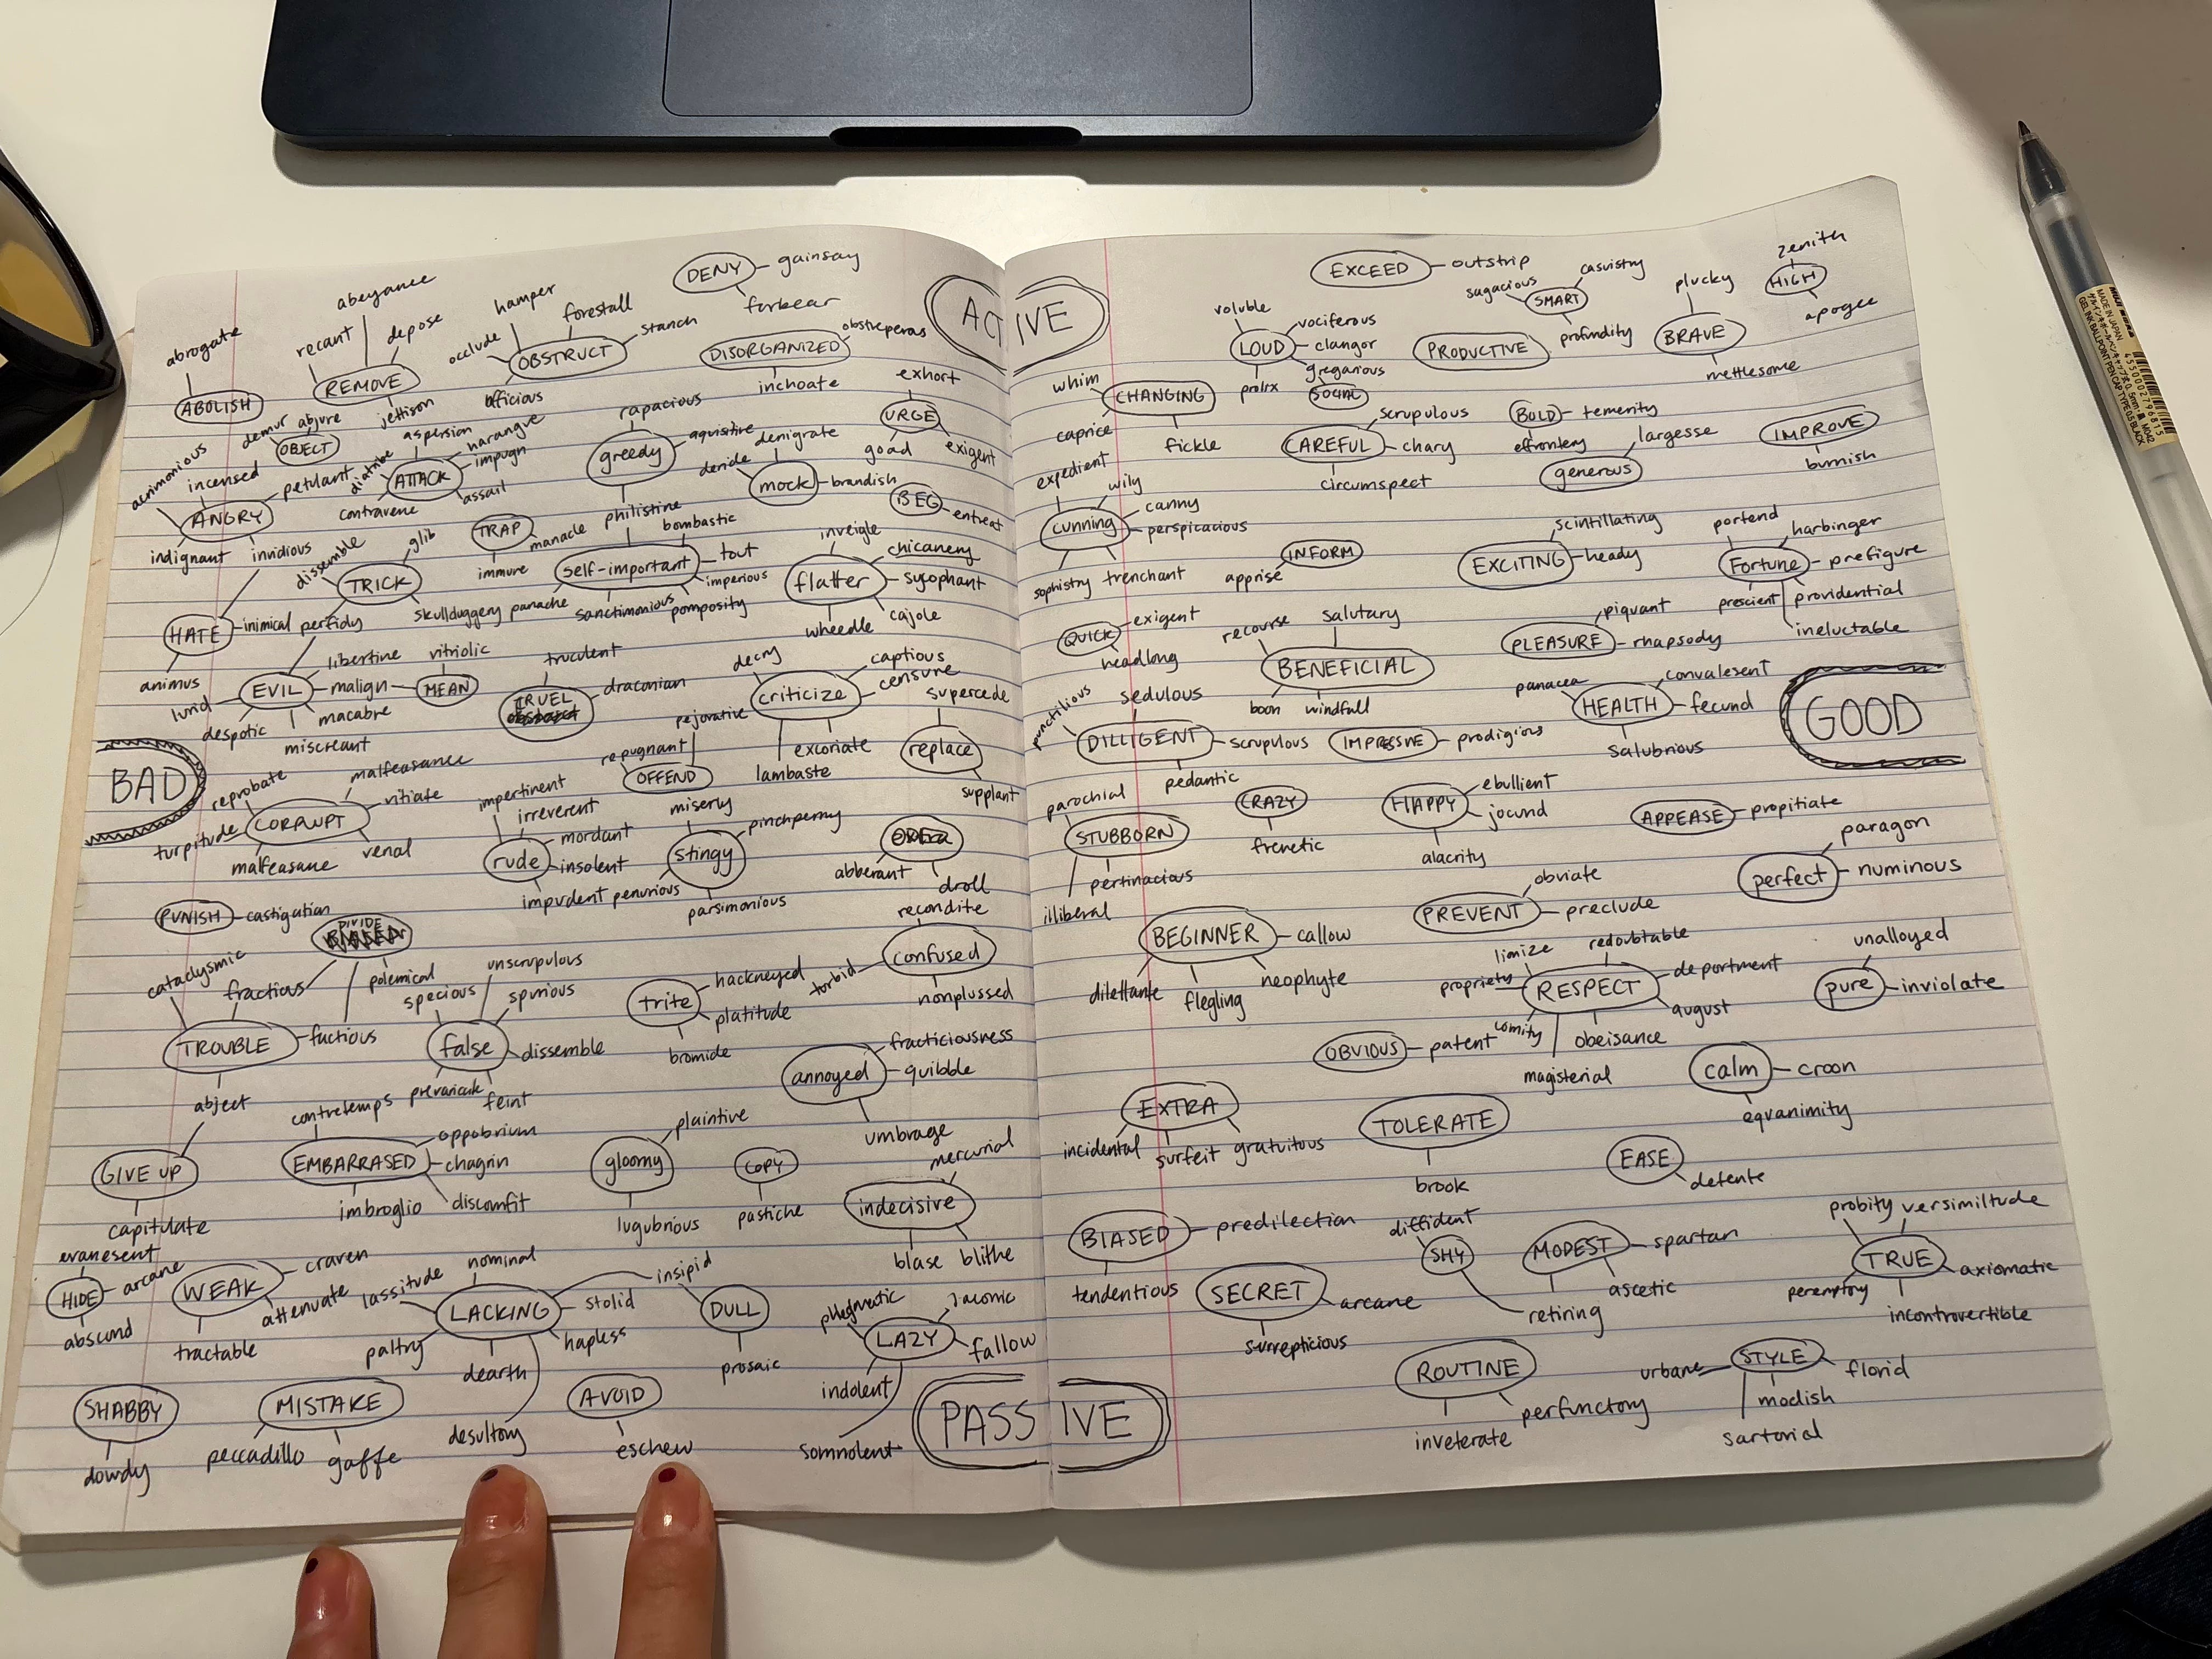 DENY
gainsay
forbear
abeyance
hamper
forestall
stanch
abrogate
recant
depose
occlude
OBSTRUCT
officious
DISORGANIZED
obstreperous
inchoate
ACTIVE
ABOLISH
REMOVE
jettison
demur
abjure
OBJECT
exhort
URGE
goad
exigent
acrimonious
incensed
petulant
ANGRY
indignant
invidious
aspersion
harangue
diatribe
ATTACK
impugn
assail
contravene
rapacious
greedy
aquisitive
denigrate
deride
mock
brandish
BEG
entreat
TRAP
manacle
immure
philistine
bombastic
self-important
tout
imperious
panache
sanctimonious
pomposity
inveigle
chicanery
flatter
sycophant
wheedle
cajole
dissemble
glib
TRICK
skullduggery
perfidy
HATE
inimical
animus
libertine
vitriolic
EVIL
malign
MEAN
lurid
macabre
despotic
miscreant
truculent
CRUEL
draconian
decry
captious
criticize
censure
excoriate
lambaste
pejorative
repugnant
OFFEND
supercede
replace
supplant
BAD
reprobate
malfeasance
CORRUPT
vitiate
turpitude
malfeasane
venal
impertinent
irreverent
mordant
rude
insolent
impudent
miserly
pinchpenny
stingy
penurious
parsimonious
abberant
droll
PUNISH
castigation
DIVIDE
polemical
cataclysmic
fractious
TROUBLE
factious
abject
unscrupulous
specious
spurious
false
dissemble
prevaricate
feint
hackneyed
trite
platitude
bromide
recondite
confused
torbid
nonplussed
fracticiousness
annoyed
quibble
umbrage
GIVE UP
capitulate
contretemps
oppobrium
EMBARRASED
chagrin
imbroglio
discomfit
plaintive
gloomy
lugubrious
COPY
pastiche
mercurial
indecisive
blase
blithe
evanesent
HIDE
arcane
abscond
WEAK
craven
attenuate
tractable
lassitude
nominal
LACKING
stolid
hapless
paltry
dearth
desultory
insipid
DULL
prosaic
phlegmatic
laconic
LAZY
fallow
indolent
somnolent
SHABBY
dowdy
MISTAKE
peccadillo
gaffe
AVOID
eschew
PASSIVE
EXCEED
outstrip
sagacious
casuistry
SMART
profundity
plucky
BRAVE
mettlesome
zenith
HIGH
apogee
voluble
vociferous
LOUD
clangor
prolix
gregarious
SOCIAL
PRODUCTIVE
whim
CHANGING
caprice
fickle
scrupulous
CAREFUL
chary
circumspect
BOLD
temerity
effrontery
largesse
generous
IMPROVE
burnish
expedient
wily
canny
cunning
perspicacious
sophistry
trenchant
INFORM
apprise
scintillating
EXCITING
heady
portend
harbinger
Fortune
prefigure
prescient
providential
ineluctable
QUICK
exigent
headlong
recourse
salutary
BENEFICIAL
boon
windfall
piquant
PLEASURE
rhapsody
panacea
convalesent
HEALTH
fecund
salubrious
GOOD
punctilious
sedulous
DILLIGENT
scrupulous
pedantic
IMPRESSIVE
prodigious
parochial
STUBBORN
pertinacious
illiberal
CRAZY
frenetic
HAPPY
ebullient
jocund
alacrity
APPEASE
propitiate
paragon
perfect
numinous
BEGINNER
callow
dilettante
flegling
neophyte
obviate
PREVENT
preclude
limize
redoubtable
propriety
RESPECT
deportment
august
comity
obeisance
magisterial
unalloyed
pure
inviolate
OBVIOUS
patent
calm
croon
equanimity
EXTRA
incidental
surfeit
gratuitous
TOLERATE
brook
EASE
detente
BIASED
predilection
tendentious
SECRET
arcane
surrepticious
diffident
SHY
retiring
MODEST
spartan
ascetic
probity
versimiltude
TRUE
axiomatic
peremptory
incontrovertible
ROUTINE
inveterate
perfunctory
urbane
STYLE
florid
modish
sartorial
MADE IN JAPAN